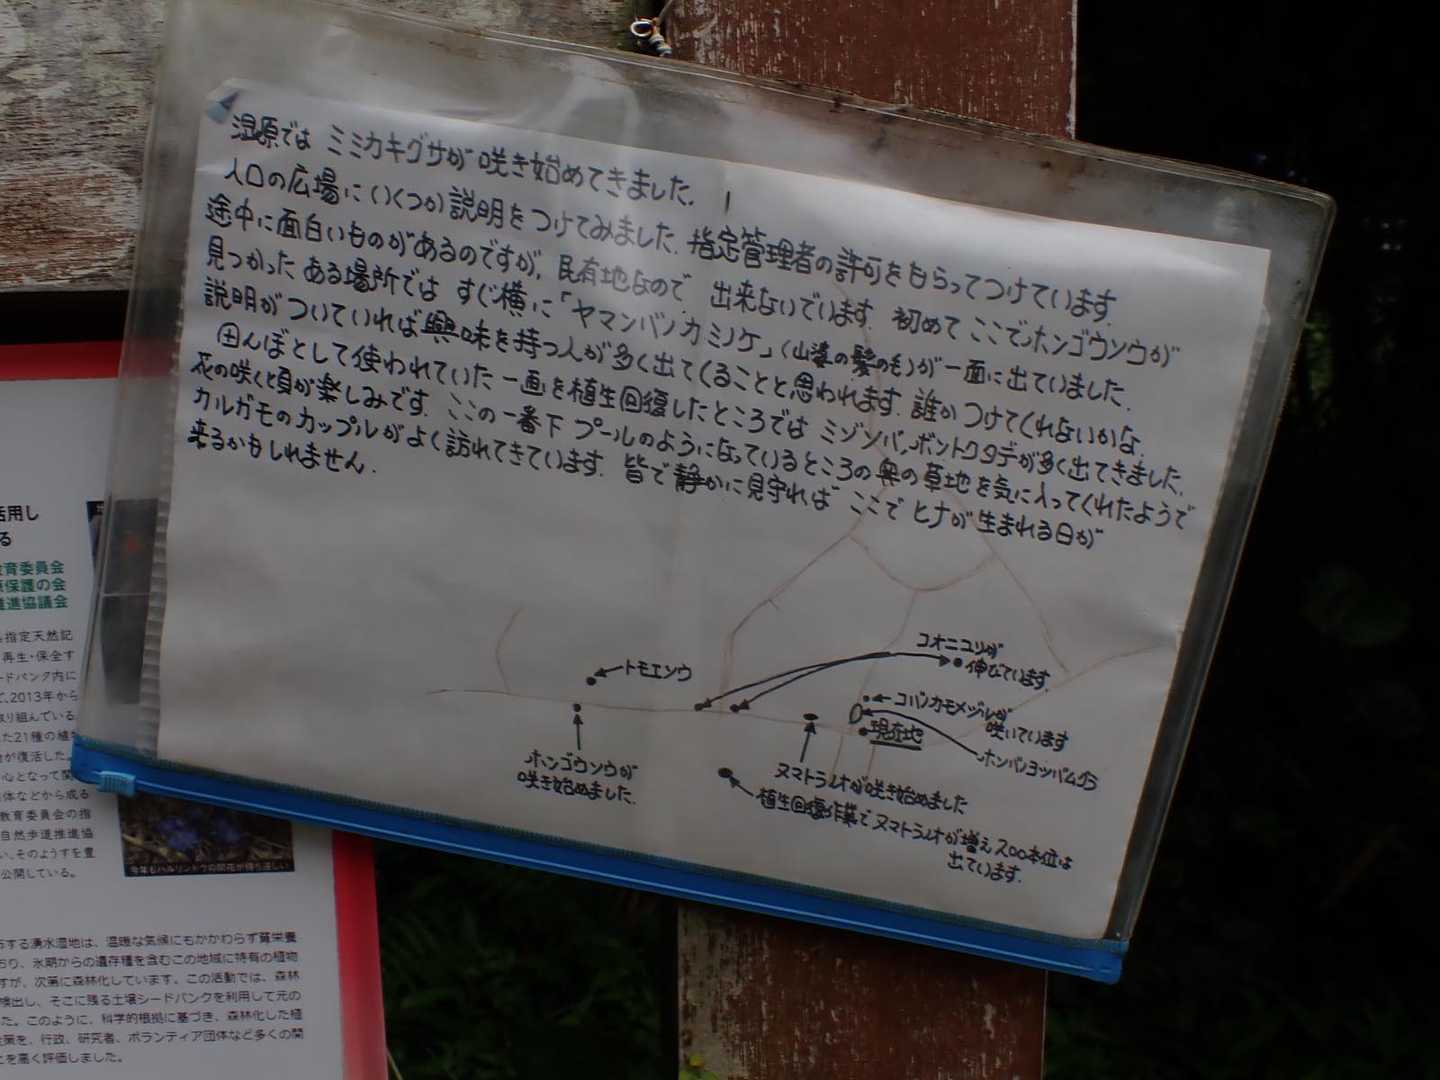 湿原では ミミカキグサが 咲き始めてきました.
入口の広場に いくつか 説明を つけてみました. 指定管理者の許可をもらってつけています.
途中に面白いものがあるのですが, 民有地なので 出来ないでいます. 初めて ここで ホンゴウソウが
見つかった ある場所では すぐ横に「ヤマンバノカミノケ」(山婆の髪の毛)が 一面に出ていました.
説明が ついていれば 興味を持つ人が 多く出てくることと 思われます. 誰か つけてくれないかな.
田んぼとして 使われていた 一画を 植生回復したところでは ミゾソバ,ボントクタデが 多く出てきました.
花の咲く頃が 楽しみです. ここの一番下 プールのようになっているところの 奥の草地を 気に入ってくれたようで
カルガモのカップルが よく訪れてきています. 皆で 静かに 見守れば ここで ヒナが 生まれる日が
来るかもしれません.
コオニユリが
伸びています.
トモエソウ
コバノカモメヅルが
咲いています
現在地
ホンゴウソウが
咲き始めました.
ヌマトラノオが咲き始めました
植生回復作業で ヌマトラノオが増え 200本位は
出ています.
活用し
る
教育委員会
原保護の会
推進協議会
指定天然記
再生・保全す
ードバンク内に
て、2013年から
取り組んでいる。
た21種の植
が復活した。
心となって関
体などから成る
教育委員会の指
自然歩道推進協
い、そのようすを豊
公開している。
今年もハルリンドウの開花が待ち遠しい
する湧水湿地は、温暖な気候にもかかわらず貧栄養
おり、氷期からの遺存種を含むこの地域に特有の植物
すが、次第に森林化しています。この活動では、森林
検出し、そこに残る土壌シードバンクを利用して元の
た。このように、科学的根拠に基づき、森林化した植
策を、行政、研究者、ボランティア団体など多くの関
とを高く評価しました。